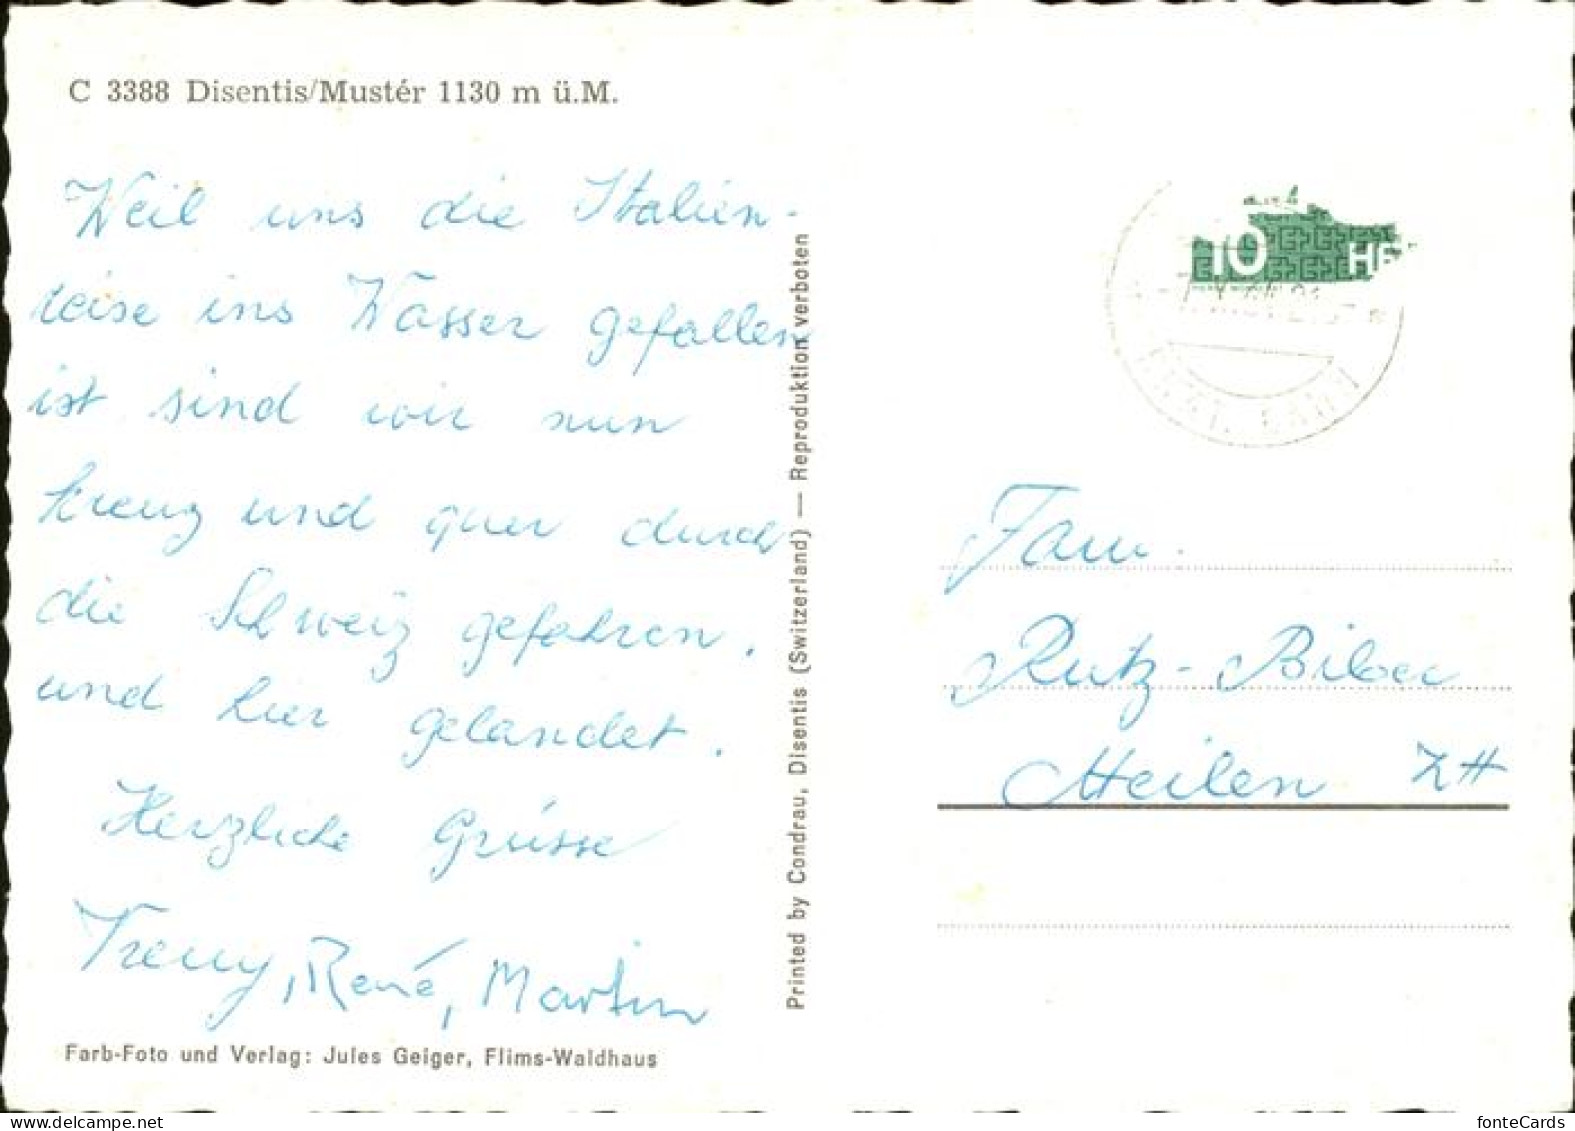 C 3388 Disentis/Mustér 1130 m ü.M.
Weil uns die Italien-
reise ins Wasser gefallen
ist sind wir nun
kreuz und quer durch
die Schweiz gefahren.
und hier gelandet.
Herzliche Grüsse
René, Martin
Farb-Foto und Verlag: Jules Geiger, Flims-Waldhaus
Printed by Condrau, Disentis (Switzerland) — Reproduktion verboten
10 HE
Fam.
Rutz-Biber
Meilen ZH
fonteCards